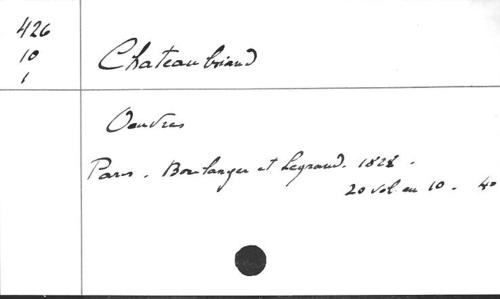 426
10
1
Chateaubriand
Oeuvres
Paris. Boulanger et Legrand. 1828.
20 vol. en 10. 40